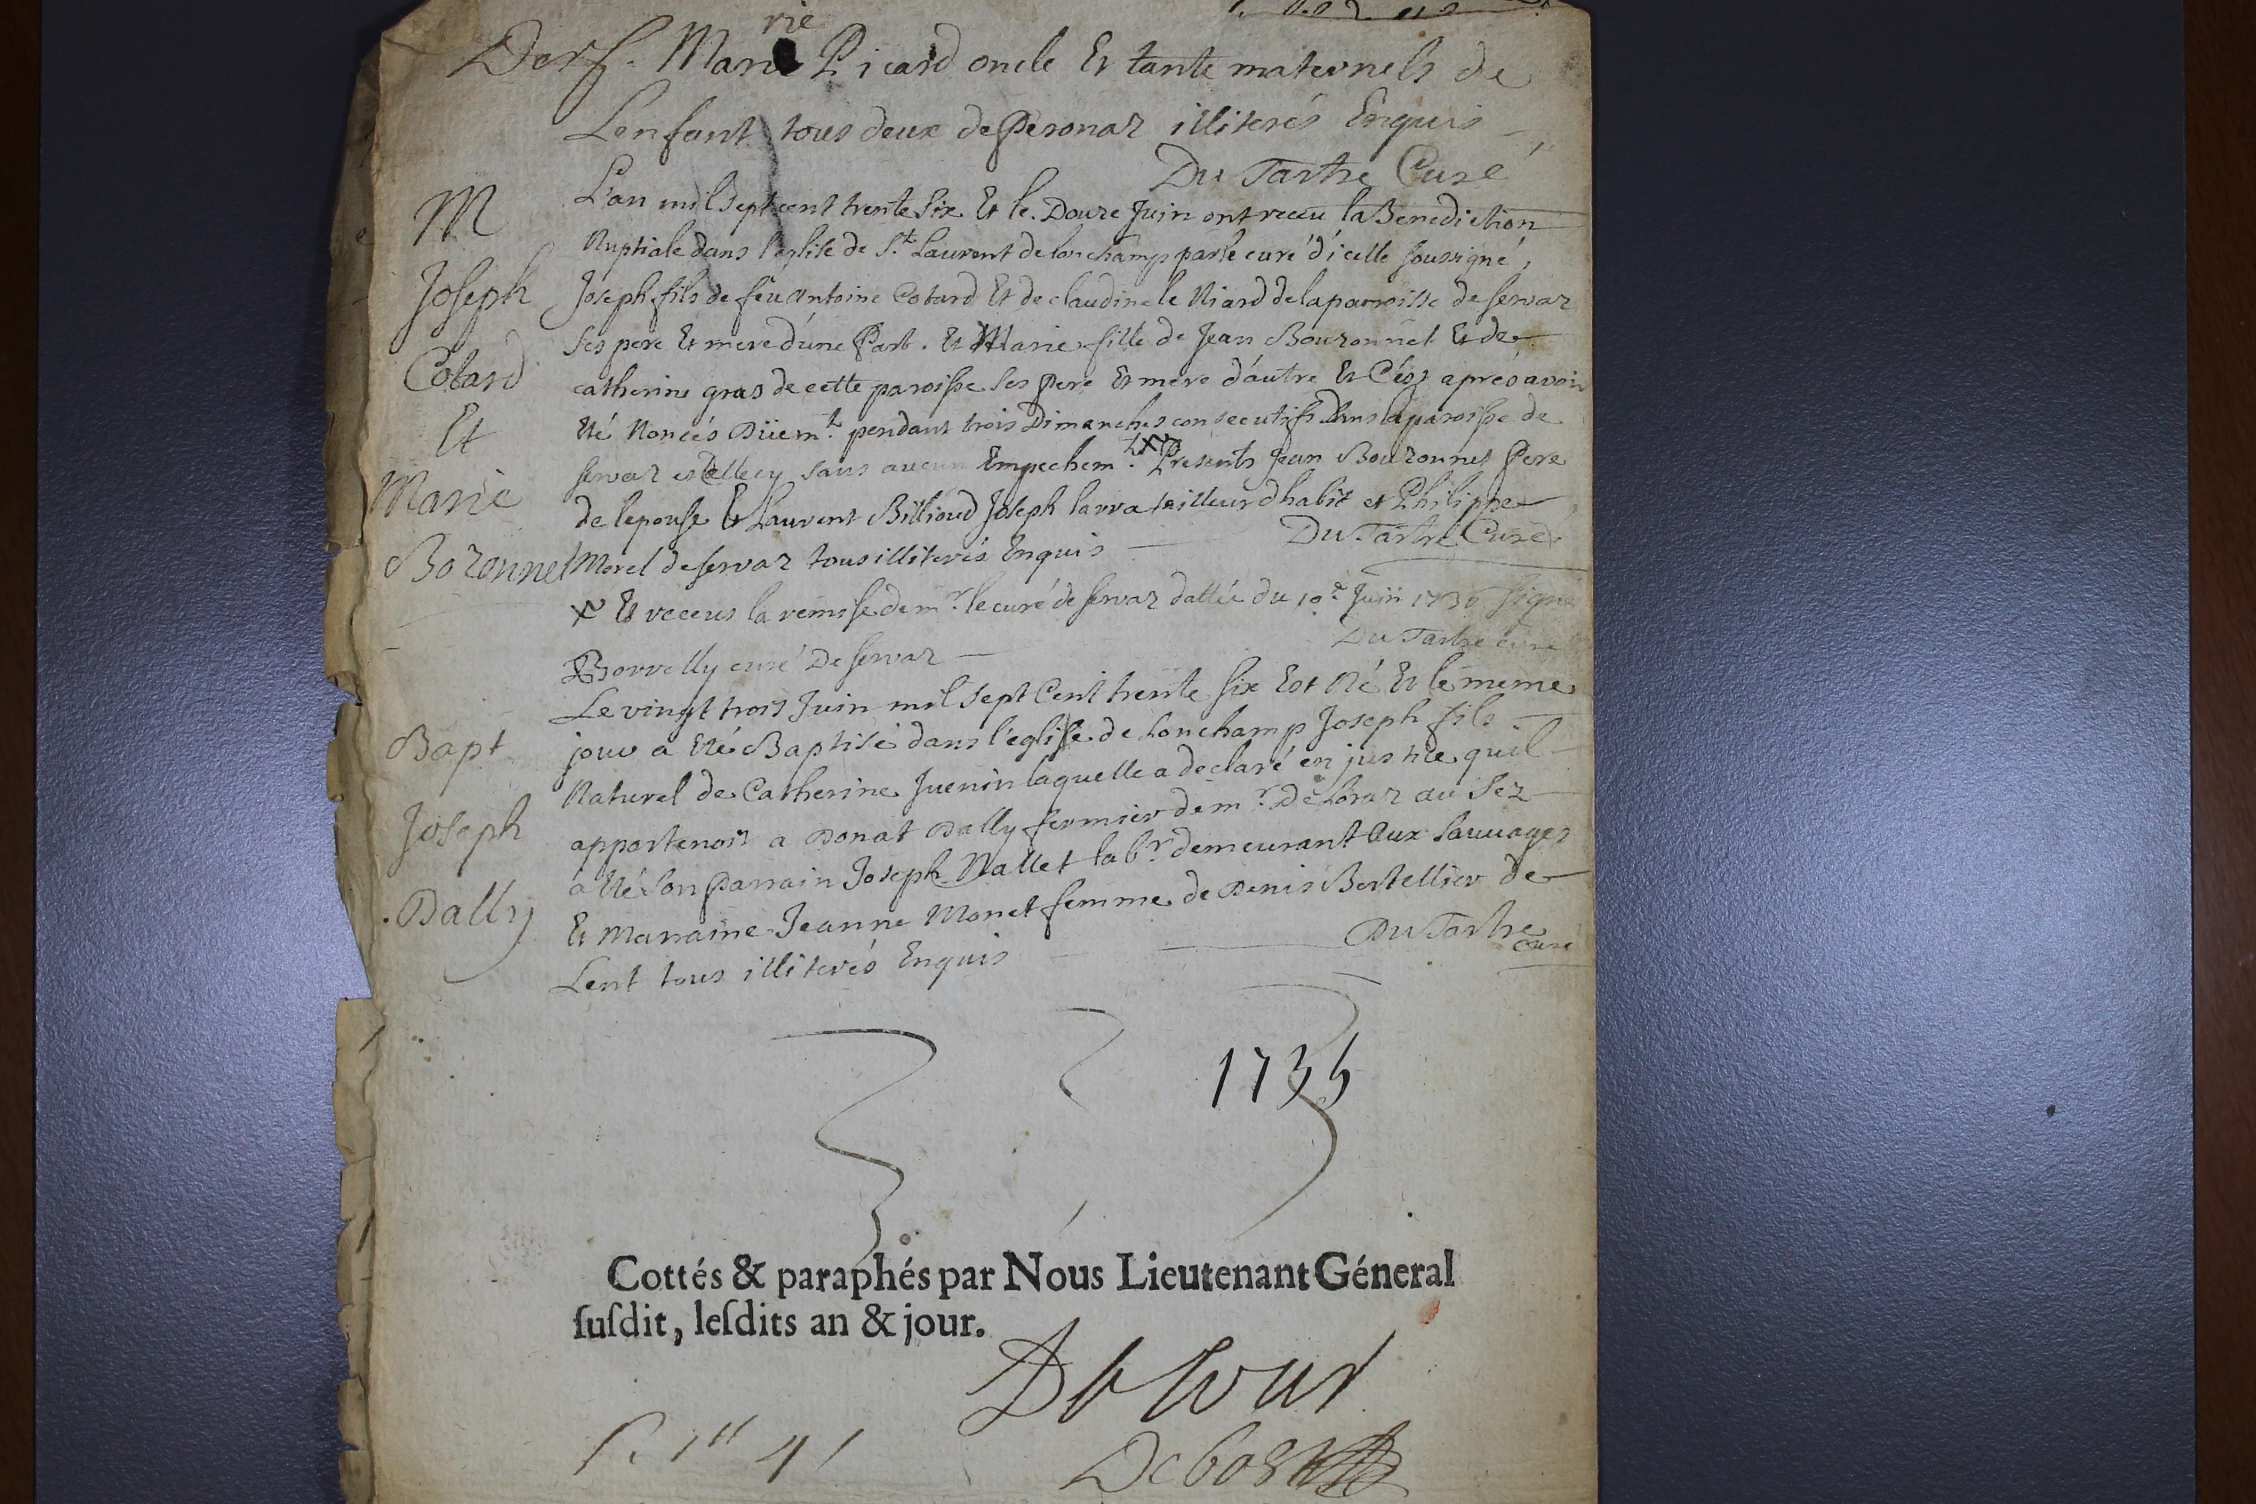 rie
Marie Picard oncle Et tante maternels de
L'enfant tous deux de Peronaz illiterés Enquis
Du Tartre Curé
M
L'an mil sept cent trente six Et le Douze Juin ont receu la Benediction
Nuptiale dans l'eglise de St. Laurent de lonchamp par le curé d'icelle soussigné,
Joseph
Joseph fils de feu Antoine Cotard Et de claudine le Niard de la parroisse de servaz
ses pere Et mere d'une Part. Et Marie fille de Jean Bouzonnet Et de
Cotard
catherine gras de cette paroisse ses pere Et mere d'autre Et Ce apres avoir
Et
Eté Noncés Düemt. pendant trois Dimanches consecutifs Dans la paroisse de
servaz et Celle cy sans aucun Empechemt. x Presents Jean Bouzonnet Pere
Marie
de l'epouse Et Laurent Billioud Joseph larva tailleur d'habit et Philippe
Du Tartre Curé
Bozonnet
Morel de servaz tous illiterés Enquis
x Et receus la remise de mr. le curé de servaz dattée du 10e Juin 1736 signé
Du Tartre curé
Borrelly curé De servaz
Le vingt trois Juin mil sept Cent trente six Est Né Et le meme
Bapt
jour a Eté Baptisé dans l'eglise de Lonchamp Joseph fils
Naturel de Catherine Juenin laquelle a declaré en justice quil
Joseph
appartenoit a Donat Dally fermier de mr. De Loraz au Sez
a Eté son Parrain Joseph Nallet labr. demeurant Aux Sauvages
Dally
Et Marraine Jeanne Monet femme de Denis Bertellier de
Lent tous illiterés Enquis
Du Tartre
curé
1736
Cottés & paraphés par Nous Lieutenant Géneral
susdit, lesdits an & jour.